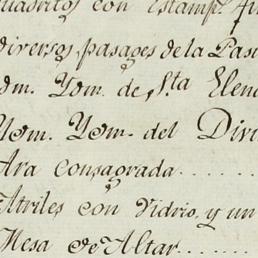 quadritos con Estamp.
diversos pasages de la Pas
Ydm. Yom. de Sta Elena
Yom. Yom. del Divi
Ara consagrada........
Atriles con Vidrio, y un
Mesa de Altar.......